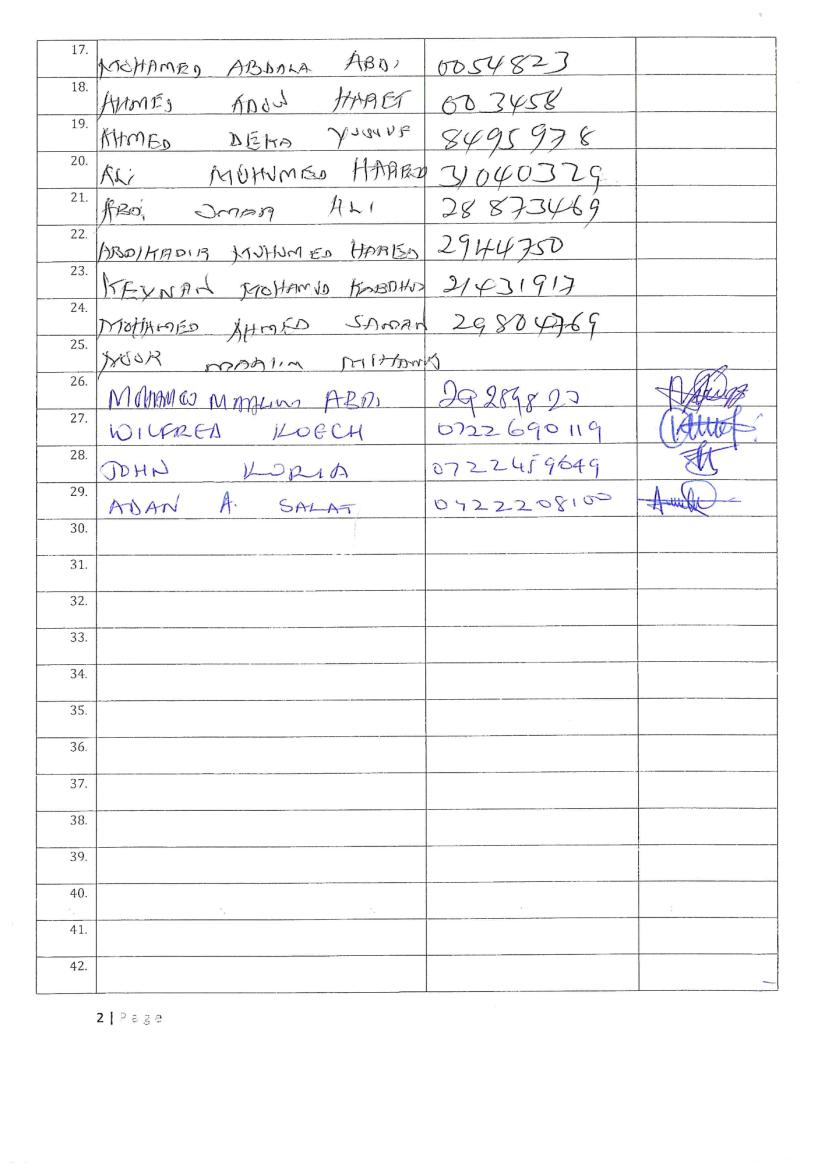 17. MOHAMED ABDALA ABDI 0054823
18. AHMED ADOW HARET 003458
19. AHMED DEKA YUSUF 8495978
20. ALI MUHUMED HARED 31040329
21. ABDI OMAR ALI 28873469
22. ABDIKADIR MUHUMED HARED 2944750
23. KEYNAN MOHAMUD 21431917
24. MOHAMED AHMED SAMAN 29804769
25. NOOR MAALIM
26. MOHAMED MAALIM ABDI 29289823
27. WILFRED KOECH 0722690119
28. JOHN KORIA 0722459649
29. ADAN A. SALAT 0722208100
30.
31.
32.
33.
34.
35.
36.
37.
38.
39.
40.
41.
42.
2 | Page